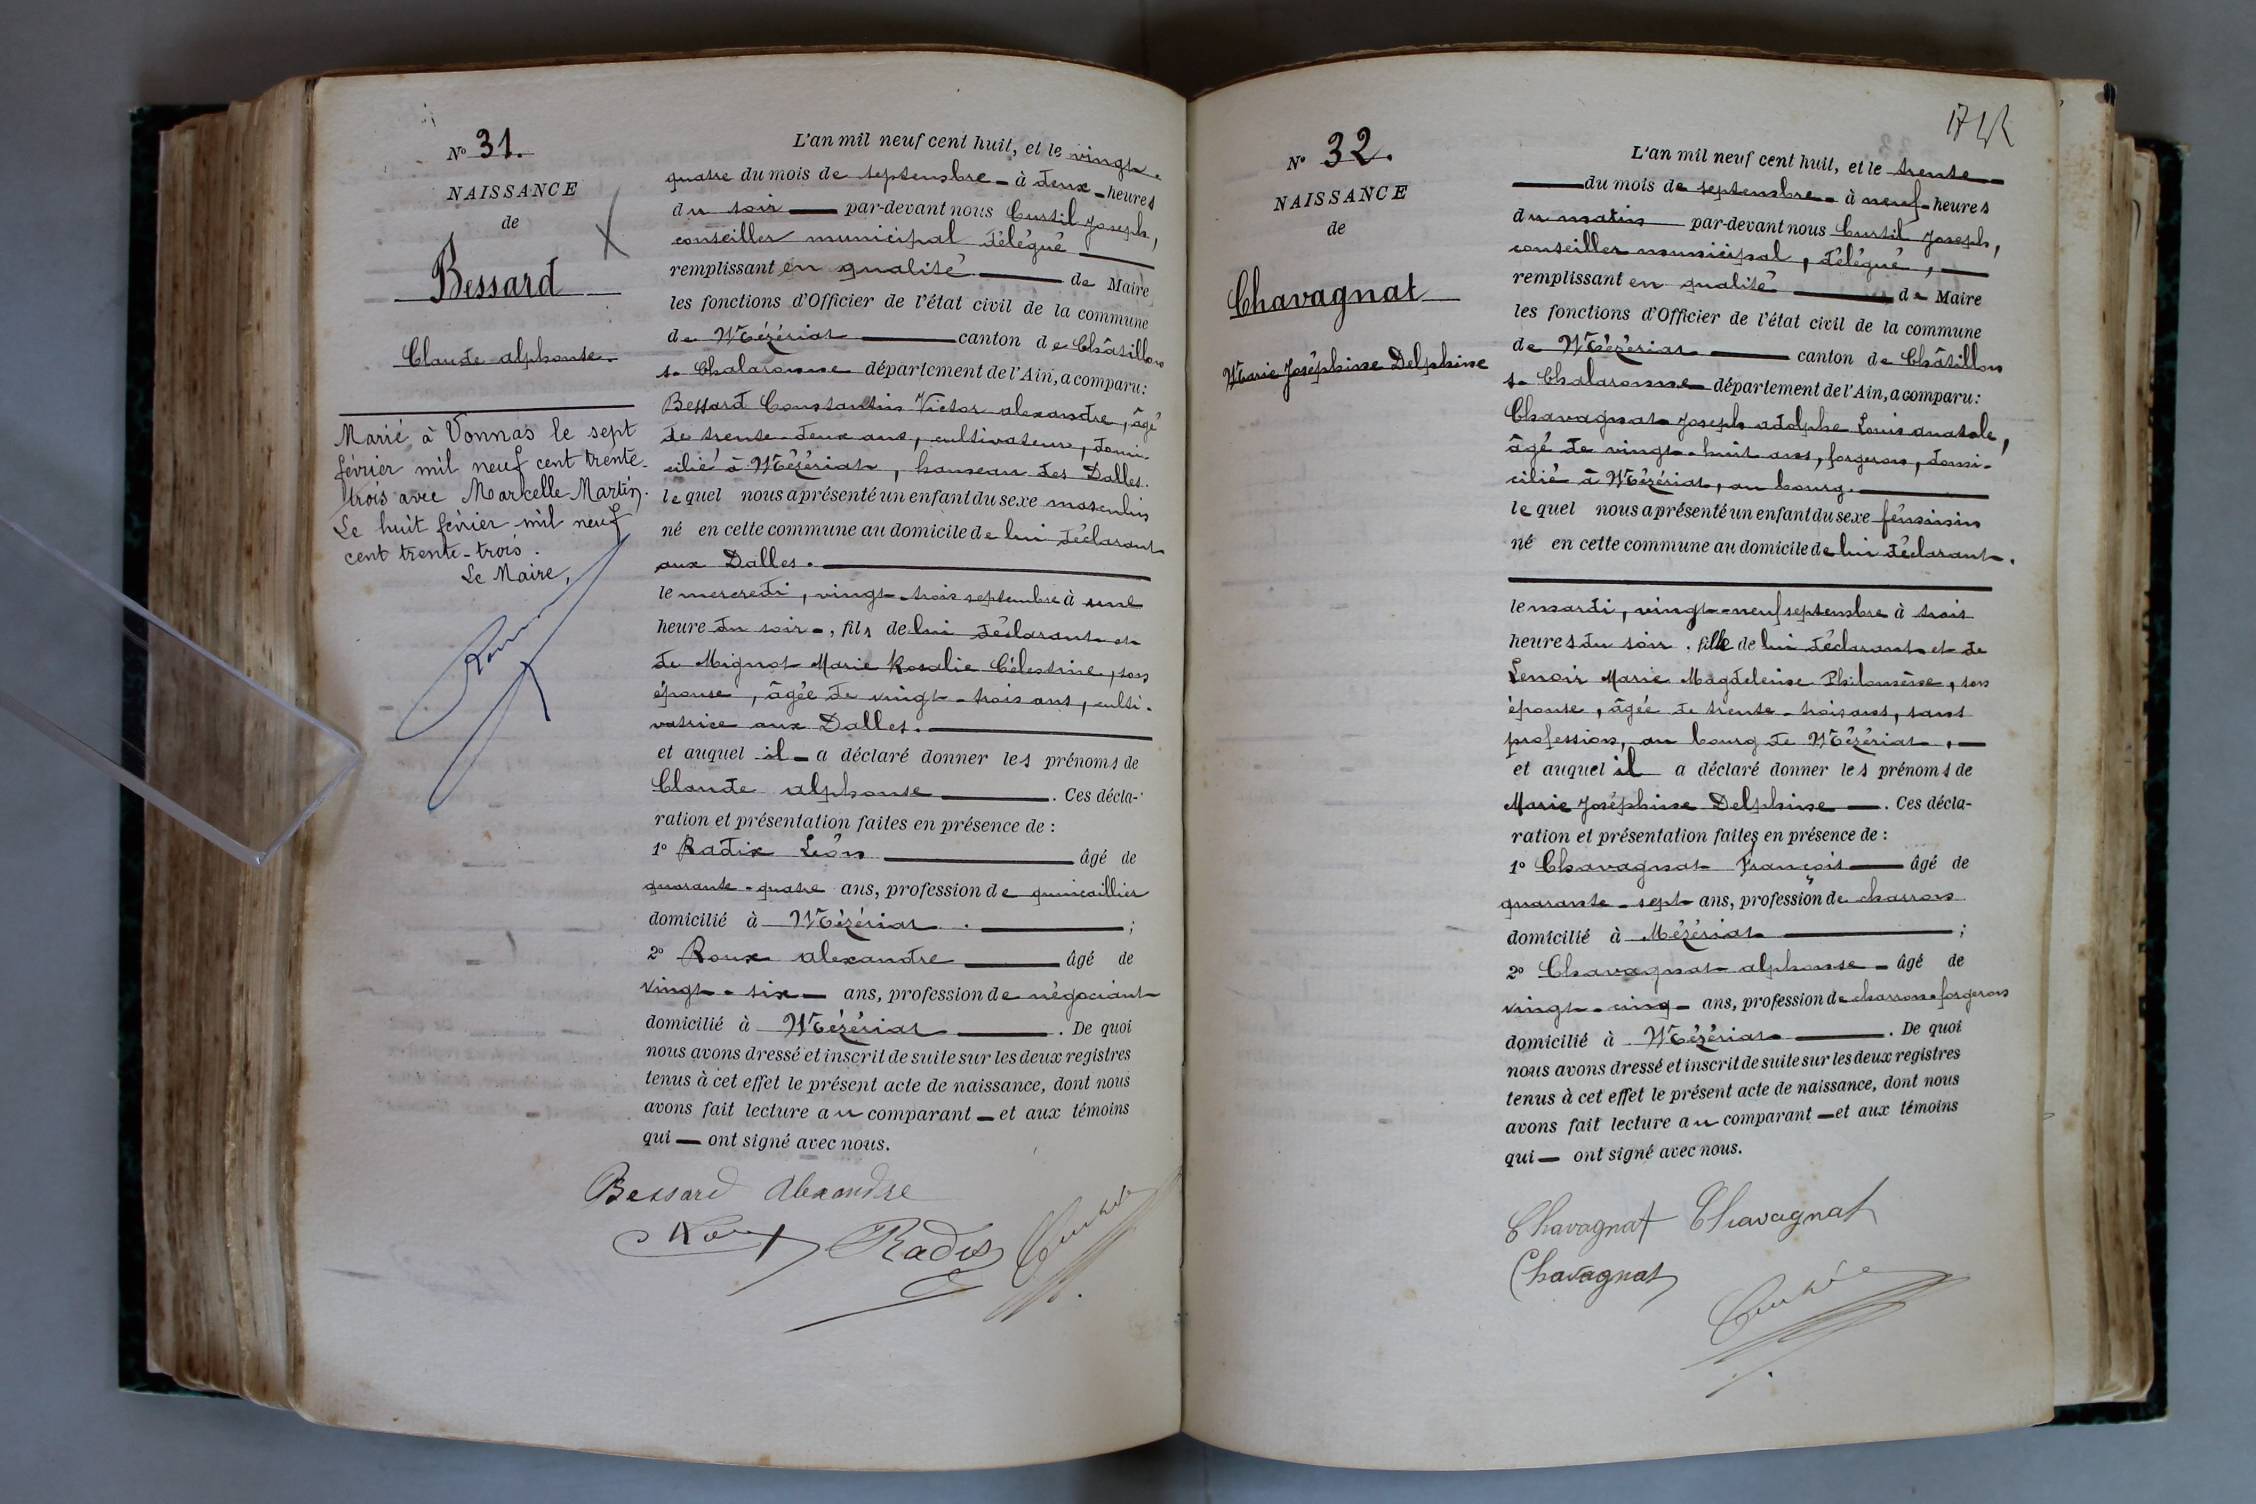 N° 31.
NAISSANCE
de
Bessard
Claude alphonse.
Marié à Vonnas le sept
février mil neuf cent trente-
trois avec Marcelle Martin.
Le huit février mil neuf
cent trente-trois.
Le Maire,
L'an mil neuf cent huit, et le vingt-
quatre du mois de septembre à deux heures
du soir par-devant nous Curtil Joseph,
conseiller municipal délégué
remplissant en qualité de Maire
les fonctions d'Officier de l'état civil de la commune
de Mézériat canton de Châtillon
s. Chalaronne département de l'Ain, a comparu:
Bessard Constantin Victor alexandre, âgé
de trente-deux ans, cultivateur, domi-
cilié à Mézériat, hameau des Dalles.
lequel nous a présenté un enfant du sexe masculin
né en cette commune au domicile de lui déclarant
aux Dalles.
le mercredi, vingt-trois septembre à une
heure du soir, fils de lui déclarant et
de Mignot Marie Rosalie Célestine, son
épouse, âgée de vingt-trois ans, culti-
vatrice aux Dalles.
et auquel il a déclaré donner les prénoms de
Claude alphonse. Ces décla-
ration et présentation faites en présence de :
1° Radix Léon âgé de
quarante-quatre ans, profession de quincaillier
domicilié à Mézériat ;
2° Roux alexandre âgé de
vingt-six ans, profession de négociant
domicilié à Mézériat. De quoi
nous avons dressé et inscrit de suite sur les deux registres
tenus à cet effet le présent acte de naissance, dont nous
avons fait lecture au comparant et aux témoins
qui ont signé avec nous.
Bessard Alexandre
Roux Radix
1742
N° 32.
NAISSANCE
de
Chavagnat
Marie Joséphine Delphine
L'an mil neuf cent huit, et le trente
du mois de septembre à neuf heures
du matin par-devant nous Curtil Joseph,
conseiller municipal, délégué,
remplissant en qualité de Maire
les fonctions d'Officier de l'état civil de la commune
de Mézériat canton de Châtillon
s. Chalaronne département de l'Ain, a comparu:
Chavagnat Joseph adolphe Louis anatole,
âgé de vingt-huit ans, forgeron, domi-
cilié à Mézériat, au bourg.
lequel nous a présenté un enfant du sexe féminin
né en cette commune au domicile de lui déclarant.
le mardi, vingt-neuf septembre à trois
heures du soir. fille de lui déclarant et de
Lenoir Marie Magdeleine Philomène, son
épouse, âgée de trente-trois ans, sans
profession, au bourg de Mézériat.
et auquel il a déclaré donner les prénoms de
Marie Joséphine Delphine. Ces décla-
ration et présentation faites en présence de :
1° Chavagnat François âgé de
quarante-sept ans, profession de charron
domicilié à Mézériat ;
2° Chavagnat alphonse âgé de
vingt-cinq ans, profession de charron-forgeron
domicilié à Mézériat. De quoi
nous avons dressé et inscrit de suite sur les deux registres
tenus à cet effet le présent acte de naissance, dont nous
avons fait lecture au comparant et aux témoins
qui ont signé avec nous.
Chavagnat Chavagnat
Chavagnat